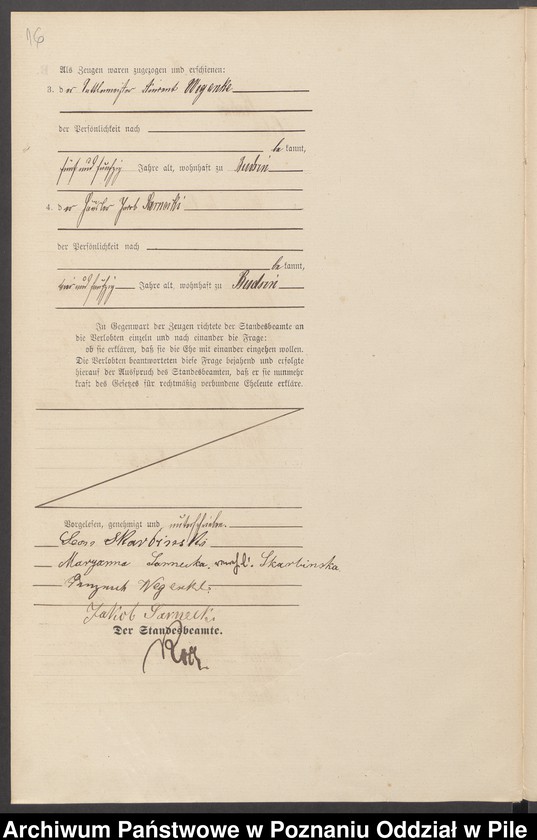 16
Als Zeugen waren zugezogen und erschienen:
3. der Sattlermeister Vincent Wegenke
der Persönlichkeit nach
be kannt,
fünf und fünfzig Jahre alt, wohnhaft zu Budsin
4. der Häusler Jacob Sarnecki
der Persönlichkeit nach
be kannt,
und fünfzig Jahre alt, wohnhaft zu Budsin
In Gegenwart der Zeugen richtete der Standesbeamte an
die Verlobten einzeln und nach einander die Frage:
ob sie erklären, daß sie die Ehe mit einander eingehen wollen.
Die Verlobten beantworteten diese Frage bejahend und erfolgte
hierauf der Ausspruch des Standesbeamten, daß er sie nunmehr
kraft des Gesetzes für rechtmäßig verbundene Eheleute erkläre.
Vorgelesen, genehmigt und unterschrieben.
Leon Skarbinski
Maryanna Sarnecka, verehl. Skarbinska
Wegenke
Jakob Sarnecki
Der Standesbeamte.
Archiwum Państwowe w Poznaniu Oddział w Pile